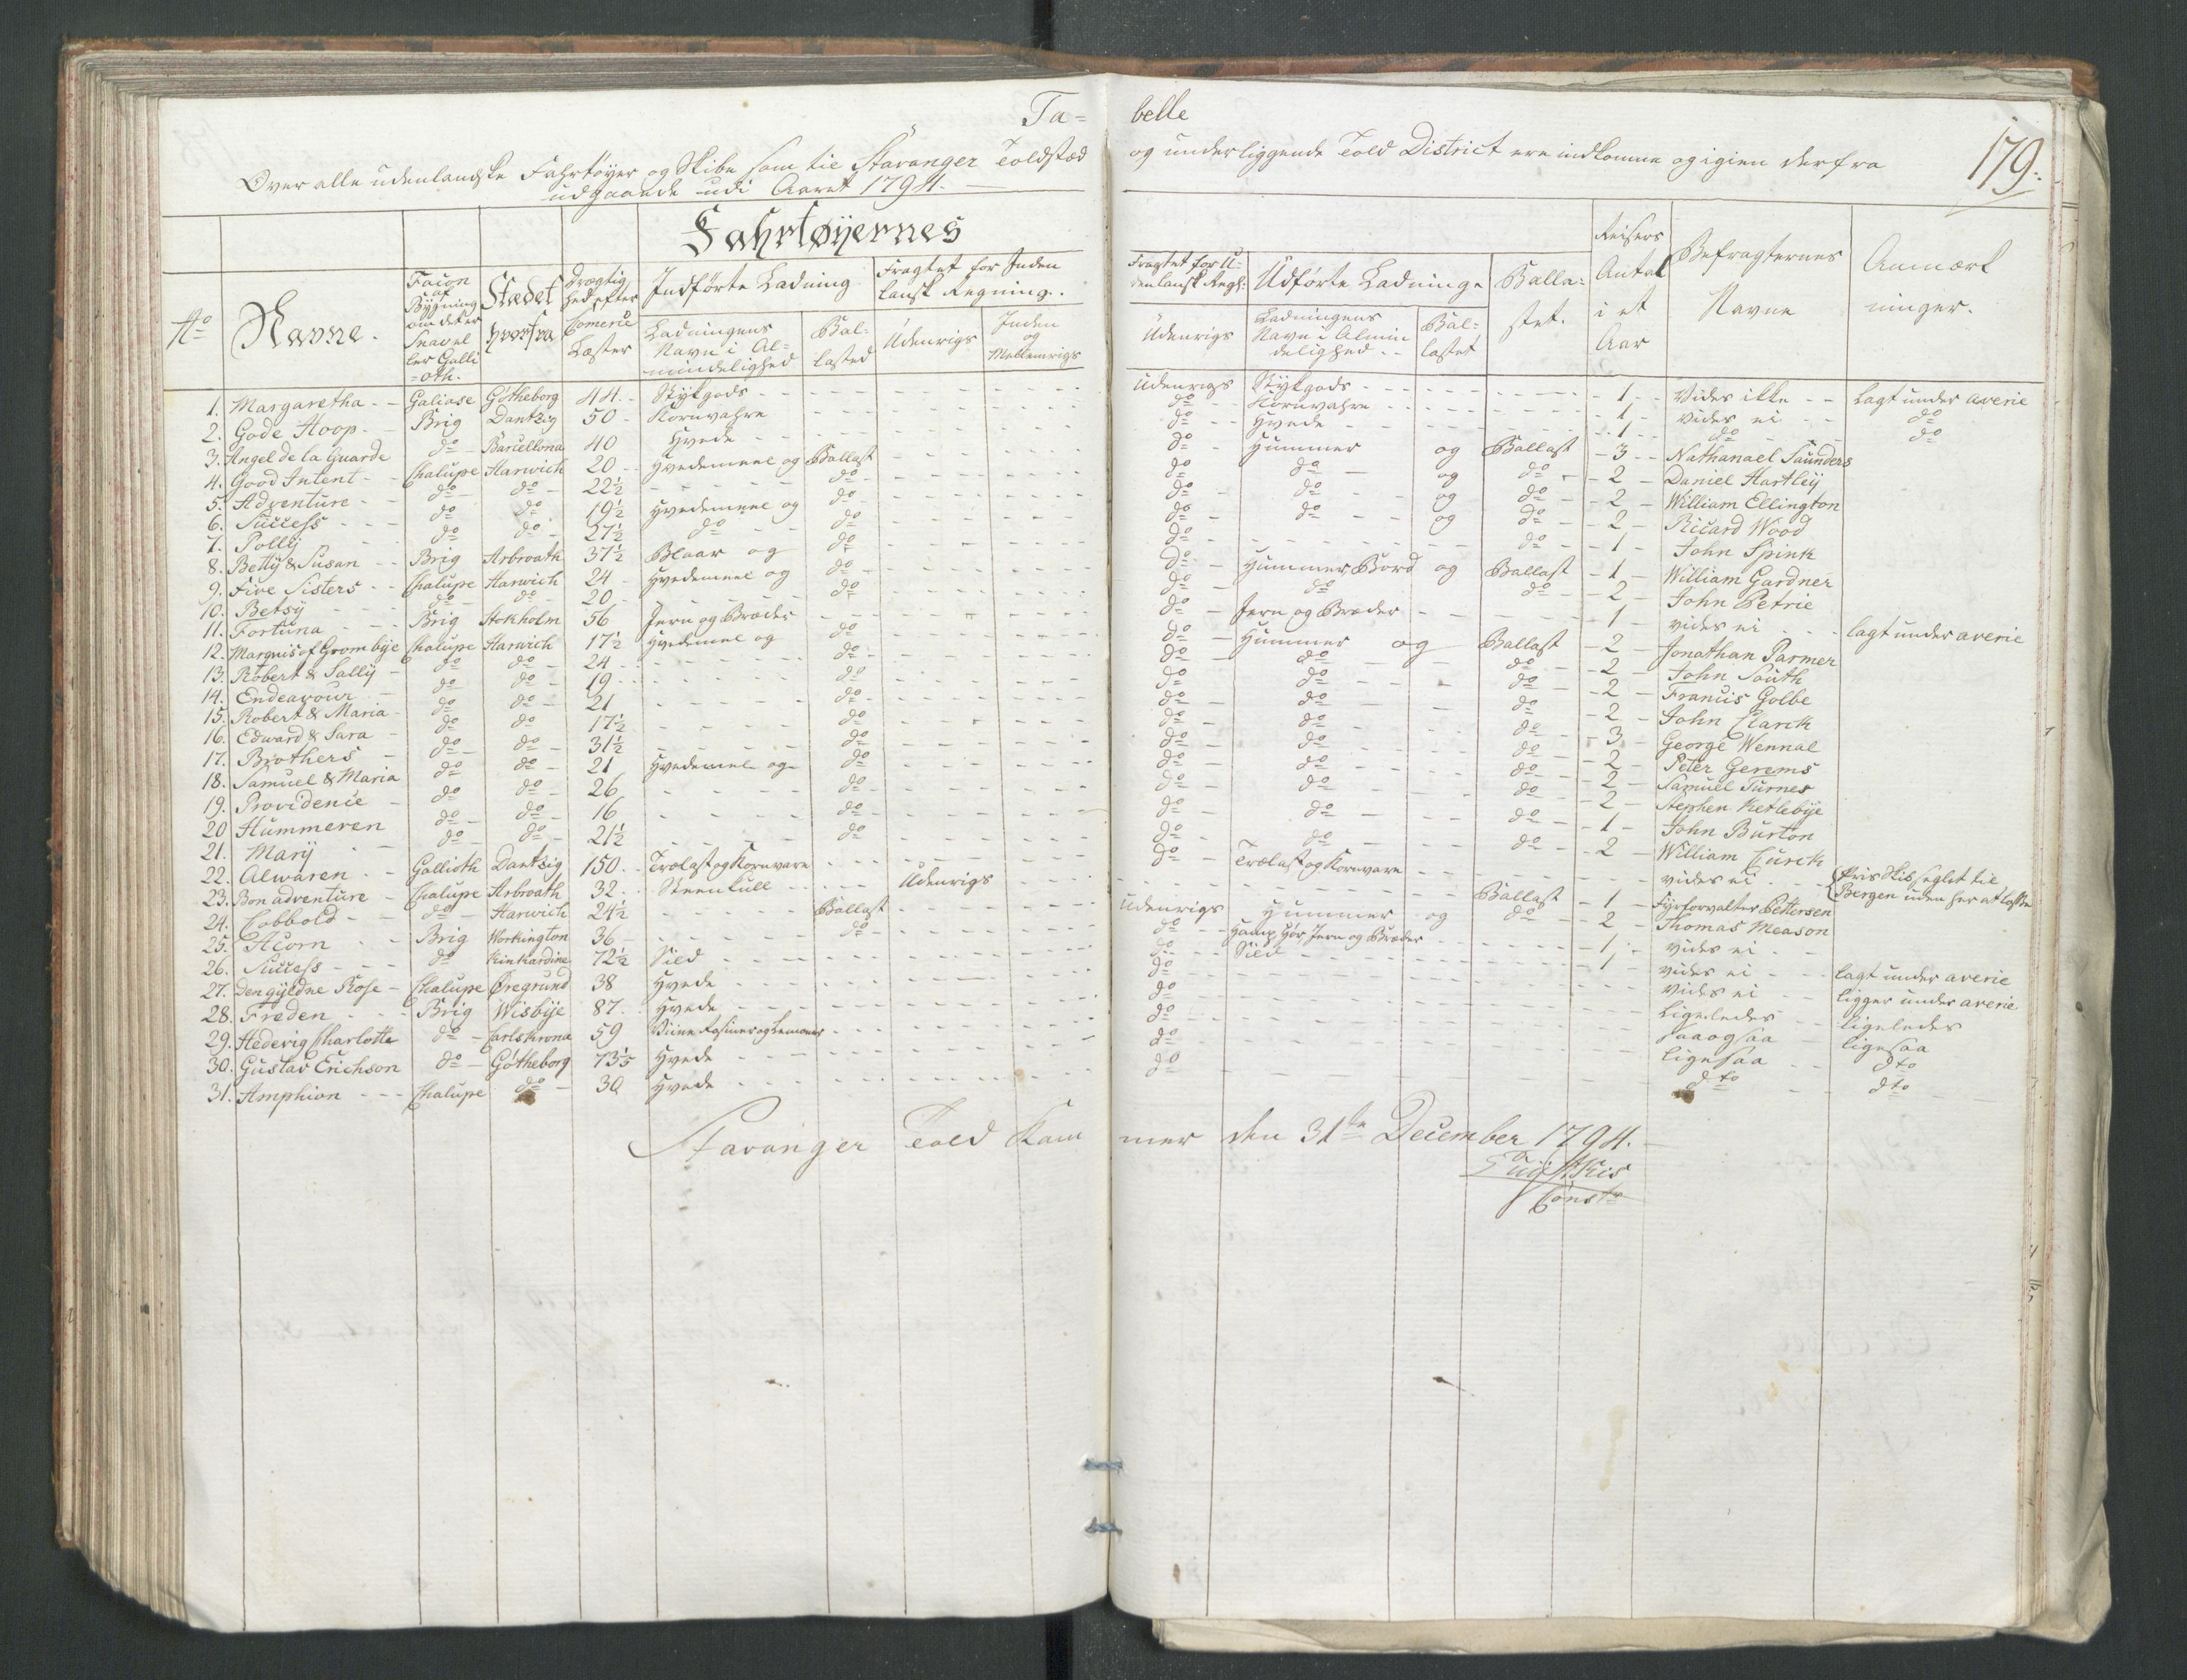 Ta= belle
179.
Over alle udenlandske Fahrtøyer og Skibe som til Stavanger Toldstæd og underliggende Told District ere indkomne og igien derfra
udgaaende udi Aaret 1794.
Fahrtøyernes
No
Navne.
Facion af Bygning om det er Snav eller Galli=oth.
Stædet hvorfra
Drægtighed efter Comerce Læster
Indførte Ladning
Ladningens Navn i Almindelighed
Bal=lasted
Fragtet for Inden lansk Regning.
Udenrigs
Inden og Mellemrigs
Fragtet for U=denlansk Regn:
Udenrigs
Udførte Ladninge
Ladningens Navn i Almindelighed
Bal=lastet
Balla=stet.
Reisers Antal i et Aar
Befragternes Navne
Anmærkninger.
1. Margaretha Galiase Götheborg 44 Stykgods Udenrigs Stykgods 1 Vides ikke lagt under averie
2. Gode Hoop Brig Dantzig 50 Kornvahre do Kornvahre 1 vides ei do
3. Angel de la Guarde do Barcellona 40 Hvede do Hvede 1 do do
4. Good Intent Chalupe Harwich 20 Hvedemeel og Ballast do Hummer og Ballast 3 Nathanael Saunders
5. Adventure do do 22½ do do do og do 2 Daniel Hartley
6. Success do do 19½ Hvedemeel og do do do og do 2 William Ellington
7. Polly do do 27½ do do do do og do 2 Ricard Wood
8. Betty & Susan Brig Arbroath 37½ Blaar og do do do 1 John Spink
9. Five Sisters Chalupe Harwich 24 Hvedemeel og do do Hummer Bord og Ballast 1 William Gardner
10. Betsy do do 20 do do do do 2 John Petrie
11. Fortuna Brig Stokholm 56 Jern og Bræder do Jern og Bræder 1 vides ei lagt under averie
12. Marquis of Grombije Chalupe Harwich 17½ Hvedemel og do do Hummer og Ballast 2 Jonathan Parmer
13. Robert & Sally do do 24 do do do do 2 John South
14. Endeavour do do 19 do do do do 2 Francis Golbe
15. Robert & Maria do do 21 do do do do 2 John Clarck
16. Edward & Sara do do 17½ do do do do 3 George Wennal
17. Brothers do do 31½ do do do do 2 Peter Gerems
18. Samuel & Maria do do 21 Hvedemel og do do do do 2 Samuel Turner
19. Providence do do 26 do do do do 2 Stephen Ketlebije
20 Hummeren do do 16 do do do do 1 John Burton
21. Mary do do 21½ do do do do 2 William Curck
22. Alwaren Gallioth Dantzig 150 Trælast og Kornvare do Trælast og Kornvare vides ei
23. Bon adventure Chalupe Arbroath 32 Steenkull Udenrigs Ballast 1 Fyrforvalter Pettersen Pris Skib seglet til Bergen uden her at losse
24. Cobbold do Harwich 24½ Ballast Udenrigs Hummer og do 2 Thomas Meason
25. Acorn Brig Workington 36 do do Hamp Hør Jern og Bræder 1 vides ei
26. Success do Kinkardine 72½ Sild do Sild 1 vides ei lagt under averie
27. Den gyldne Rose Chalupe Øregrund 38 Hvede do vides ei ligger under averie
28. Freden Brig Wisbije 87 Hvede do Ligeledes ligeledes
29. Hedevig Charlotta do Carlskrona 59 Viine Rosiner og Lemoner do saaogsaa ligesaa
30. Gustav Erichson do Götheborg 73⅕ Hvede do ligesaa dto
31. Amphion Chalupe do 30 Hvede do dto dto
Stavanger Told Kammer den 31te December 1794.
Constr